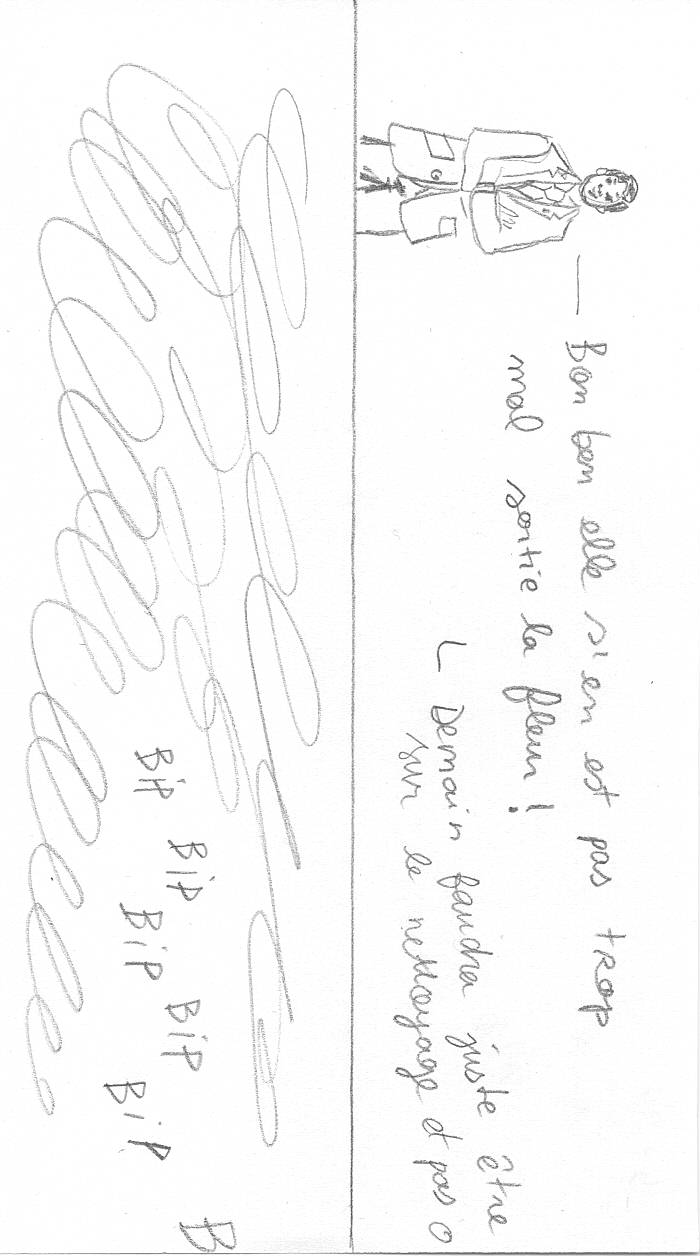 — Bon ben elle s'en est pas trop
mal sortie la fleur !
Demain faudra juste être
sur le nettoyage et pas o
Bip
Bip
Bip
Bip
Bip
B